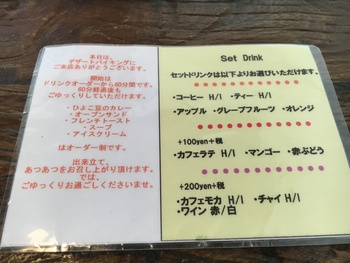 本日は、
デザートバイキングに
ご来店ありがとうございます。
開始は
ドリンクオーダーから60分間です。
60分経過後も
ごゆっくりしていただけます。
・ひよこ豆のカレー
・オープンサンド
・フレンチトースト
・スープ
・アイスクリーム
はオーダー制です。
出来立て、
あつあつをお召し上がり頂けます。
では、
ごゆっくりお過ごしくださいませ。
Set Drink
セットドリンクは以下よりお選びいただけます。
・コーヒー H/I ・ティー H/I
・アップル ・グレープフルーツ ・オレンジ
+100yen+税
・カフェラテ H/I ・マンゴー ・赤ぶどう
+200yen+税
・カフェモカ H/I ・チャイ H/I
・ワイン 赤/白